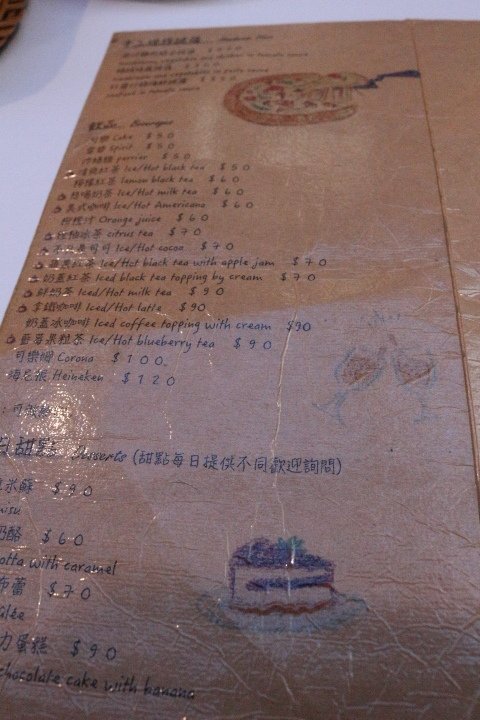 手工
mushroom, vegetables and chicken in tomato sauce
seafood in tomato sauce
飲品... Beverages
可樂 Coke $50
雪碧 Spirit $50
沛綠雅 perrier $50
紅茶 Ice/Hot black tea $50
檸檬紅茶 lemon black tea $60
奶茶 Ice/Hot milk tea $60
美式咖啡 Ice/Hot Americano $60
柳橙汁 Orange juice $60
冰茶 citrus tea $70
可可 Ice/Hot cocoa $70
蘋果紅茶 Ice/Hot black tea with apple jam $70
奶蓋紅茶 Iced black tea topping by cream $70
鮮奶茶 Iced/Hot milk tea $90
拿鐵咖啡 Iced/Hot latte $90
奶蓋冰咖啡 Iced coffee topping with cream $90
藍莓果粒茶 Ice/Hot blueberry tea $90
可樂娜 Corona $100
海尼根 Heineken $120
甜點 Desserts (甜點每日提供不同歡迎詢問)
米蘇 $90
misu
奶酪 $60
otta with caramel
布蕾 $70
ûlée
力蛋糕 $90
chocolate cake with banana